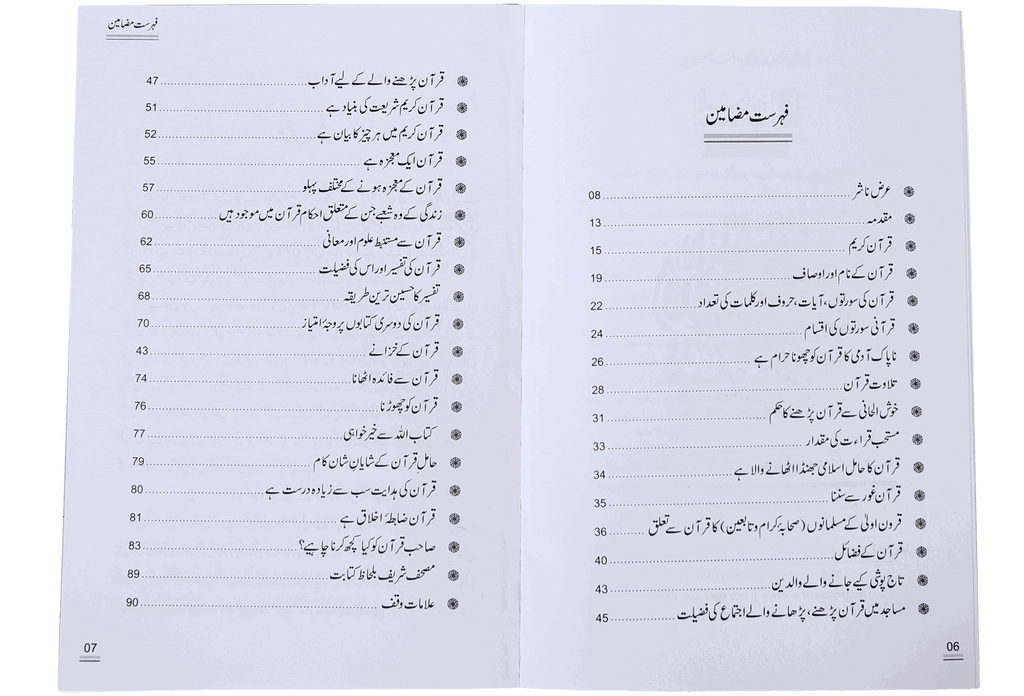 فہرست مضامین
عرض ناشر 08
مقدمہ 13
قرآن کریم 15
قرآن کے نام اور اوصاف 19
قرآن کی سورتوں، آیات، حروف اور کلمات کی تعداد 22
قرآنی سورتوں کی اقسام 24
ناپاک آدمی کا قرآن کو چھونا حرام ہے 26
تلاوت قرآن 28
خوش الحانی سے قرآن پڑھنے کا حکم 31
مستحب قراءت کی مقدار 33
قرآن کا حامل اسلامی جھنڈا اٹھانے والا ہے 34
قرآن غور سے سننا 35
قرون اولیٰ کے مسلمانوں (صحابۂ کرام و تابعین) کا قرآن سے تعلق 36
قرآن کے فضائل 40
تاج پوشی کیے جانے والے والدین 43
مساجد میں قرآن پڑھنے، پڑھانے والے اجتماع کی فضیلت 45
06
فہرست مضامین
قرآن پڑھنے والے کے لیے آداب 47
قرآن کریم شریعت کی بنیاد ہے 51
قرآن کریم میں ہر چیز کا بیان ہے 52
قرآن ایک معجزہ ہے 55
قرآن کے معجزہ ہونے کے مختلف پہلو 57
زندگی کے وہ شعبے جن کے متعلق احکام قرآن میں موجود ہیں 60
قرآن سے مستنبط علوم اور معانی 62
قرآن کی تفسیر اور اس کی فضیلت 65
تفسیر کا حسین ترین طریقہ 68
قرآن کی دوسری کتابوں پر وجۂ امتیاز 70
قرآن کے خزانے 43
قرآن سے فائدہ اٹھانا 74
قرآن کو چھوڑنا 76
کتاب اللہ سے خیر خواہی 77
حامل قرآن کے شایانِ شان کام 79
قرآن کی ہدایت سب سے زیادہ درست ہے 80
قرآن ضابطۂ اخلاق ہے 81
صاحب قرآن کو کیا کچھ کرنا چاہیے؟ 83
مصحف شریف بلحاظ کتابت 89
علامات وقف 90
07